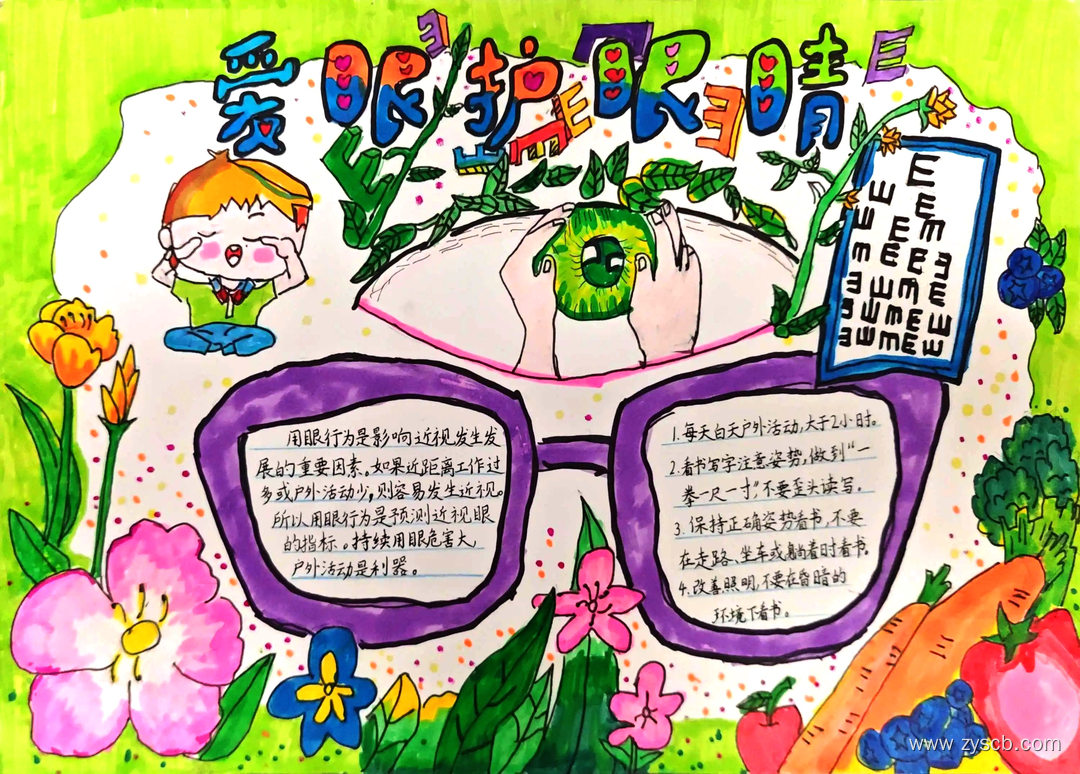 爱眼护眼睛
用眼行为是影响近视发生发
展的重要因素。如果近距离工作过
多或户外活动少,则容易发生近视。
所以用眼行为是预测近视眼
的指标。持续用眼危害大,
户外活动是利器。
1.每天白天户外活动,大于2小时。
2.看书写字注意姿势,做到“一
拳一尺一寸”,不要歪头读写。
3.保持正确姿势看书,不要
在走路、坐车或躺着时看书。
4.改善照明,不要在昏暗的
环境下看书。
www.zyscb.com